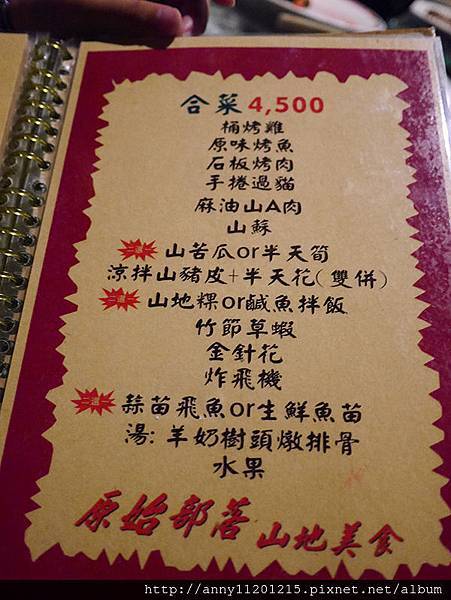 合菜4,500
桶烤雞
原味烤魚
石板烤肉
手捲過貓
麻油山A肉
山蘇
山苦瓜or半天筍
涼拌山豬皮+半天花(雙併)
山地粿or鹹魚拌飯
竹節草蝦
金針花
炸飛機
蒜苗飛魚or生鮮魚苗
湯: 羊奶樹頭燉排骨
水果
原始部落 山地美食
http://anny11201215.pixnet.net/album